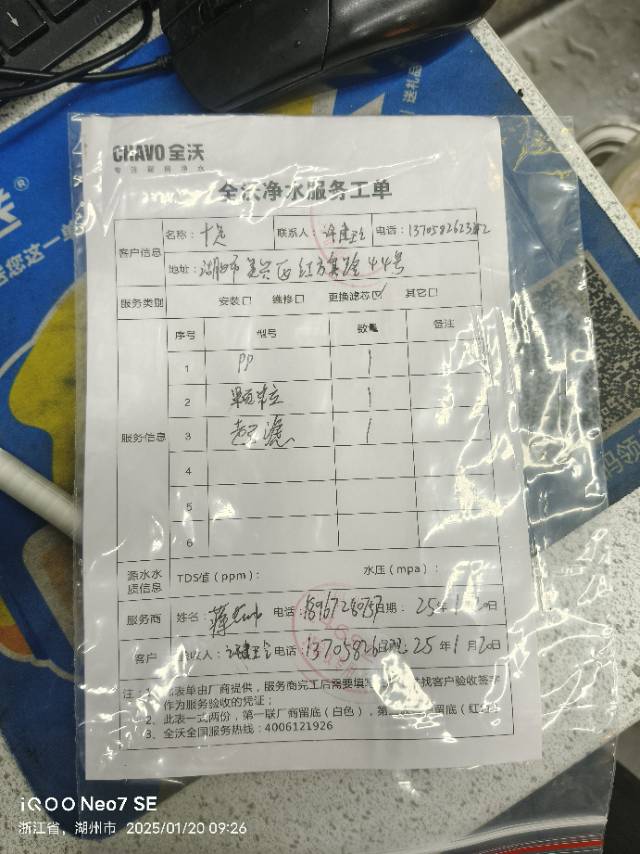 CHAVO 全沃
专注厨房净水
全沃净水服务工单
客户信息
名称：
联系人：
电话：
地址：湖州市吴兴区红方集路44号
服务类别 安装□ 维修□ 更换滤芯☑ 其它□
服务信息
序号 型号 数量 备注
1 PP 1
2 颗粒 1
3 超滤 1
4
5
6
源水水质信息 TDS值（ppm）： 水压（mpa）：
服务商 姓名： 电话：18967280757 日期：25年1月20日
客户 验收人： 电话：13705826 25年1月20日
注：1、此表单由厂商提供，服务商完工后需要填写 找客户验收签字
作为服务验收的凭证；
2、此表一式两份，第一联厂商留底（白色），第 留底（红
3、全沃全国服务热线：4006121926
送礼品
iQOO Neo7 SE
浙江省，湖州市 2025/01/20 09:26